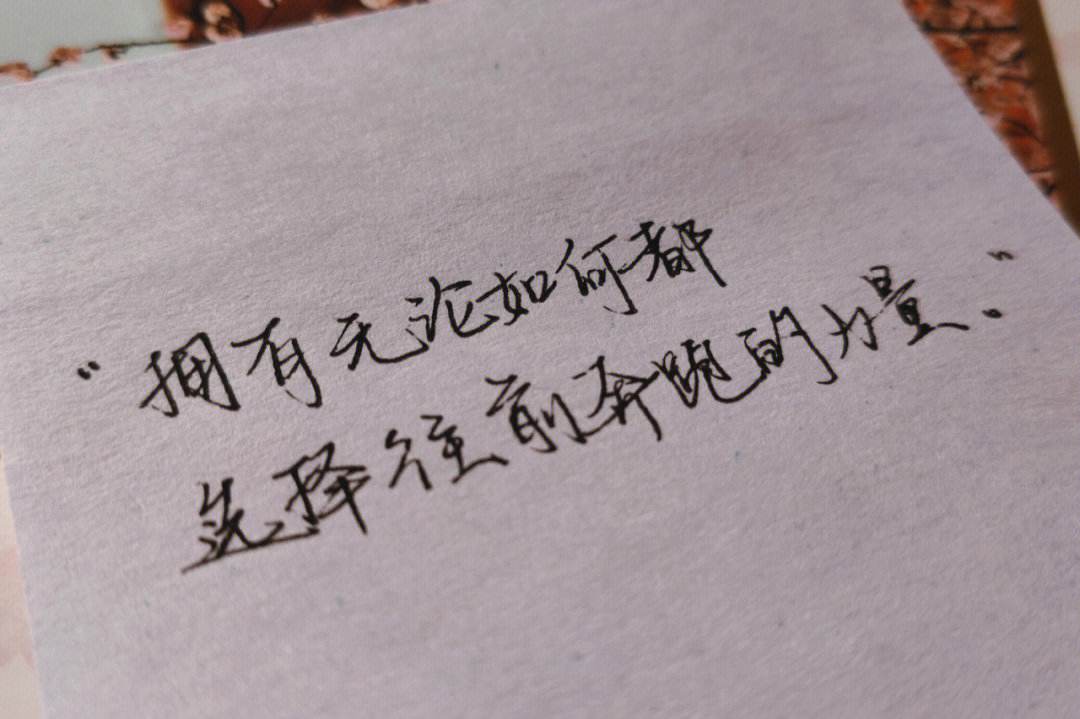 “拥有无论如何都
选择往前奔跑的力量.”